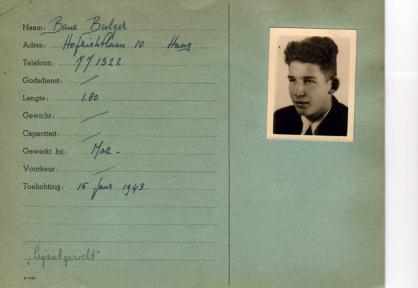 Naam: Bane Bulger
Adres: Hofwichtlaan 10 Haag
Telefoon: 77 1522
Godsdienst: /
Lengte: 1.80
Gewicht: /
Capaciteit: /
Gewerkt bij: Maz -
Voorkeur: /
Toelichting: 15 Jaar 1943